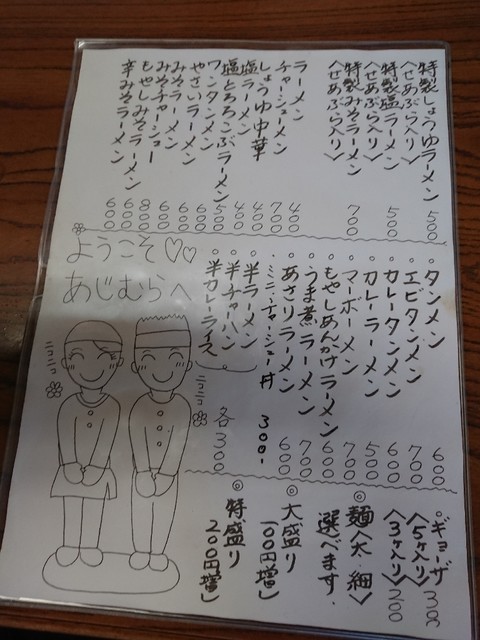 特製しょうゆラーメン 500
〈せあぶら入り〉
特製塩ラーメン 500
〈せあぶら入り〉
特製みそラーメン 700
〈せあぶら入り〉
ラーメン 400
チャーシューメン 700
しょうゆ中華 400
塩ラーメン 400
塩とろろこぶラーメン 500
ワンタンメン 600
やさいラーメン 600
みそラーメン 600
みそチャーシュー 800
もやしみそラーメン 600
辛みそラーメン 600
。タンメン 600
。エビタンメン 700
。カレータンメン 600
。カレーラーメン 500
。マーボーメン 700
。もやしあんかけラーメン 600
。うま煮ラーメン 700
。あさりラーメン 600
・ミニチャーシュー丼 300-
。半ラーメン
。半チャハン
。半カレーライス
各300
。ギョーザ
〈5ヶ入り〉 300
〈3ヶ入り〉 200
◎麺〈太・細〉
選べます.
◎大盛り
100円増」
◎特盛り
200円増」
ようこそ♡♡
あじむらへ
ニコニコ
ニコニコ